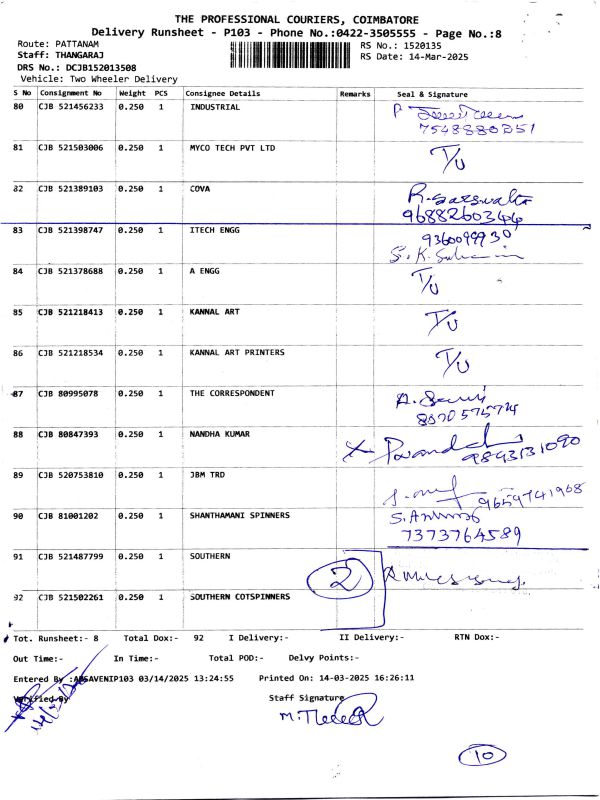 THE PROFESSIONAL COURIERS, COIMBATORE
Delivery Runsheet - P103 - Phone No.:0422-3505555 - Page No.:8
Route: PATTANAM RS No.: 1520135
Staff: THANGARAJ RS Date: 14-Mar-2025
DRS No.: DCJB152013508
Vehicle: Two Wheeler Delivery
S No Consignment No Weight PCS Consignee Details Remarks Seal & Signature
80 CJB 521456233 0.250 1 INDUSTRIAL
81 CJB 521503006 0.250 1 MYCO TECH PVT LTD T/U
82 CJB 521389103 0.250 1 COVA
9688260344
83 CJB 521398747 0.250 1 ITECH ENGG
84 CJB 521378688 0.250 1 A ENGG T/U
85 CJB 521218413 0.250 1 KANNAL ART T/U
86 CJB 521218534 0.250 1 KANNAL ART PRINTERS T/U
87 CJB 80995078 0.250 1 THE CORRESPONDENT
88 CJB 80847393 0.250 1 NANDHA KUMAR
9843131090
89 CJB 520753810 0.250 1 JBM TRD
9659741968
90 CJB 81001202 0.250 1 SHANTHAMANI SPINNERS
7373764589
91 CJB 521487799 0.250 1 SOUTHERN 2
92 CJB 521502261 0.250 1 SOUTHERN COTSPINNERS
Tot. Runsheet:- 8 Total Dox:- 92 I Delivery:- II Delivery:- RTN Dox:-
Out Time:- In Time:- Total POD:- Delvy Points:-
Entered By :ABSAVENIP103 03/14/2025 13:24:55 Printed On: 14-03-2025 16:26:11
Verified By Staff Signature
10